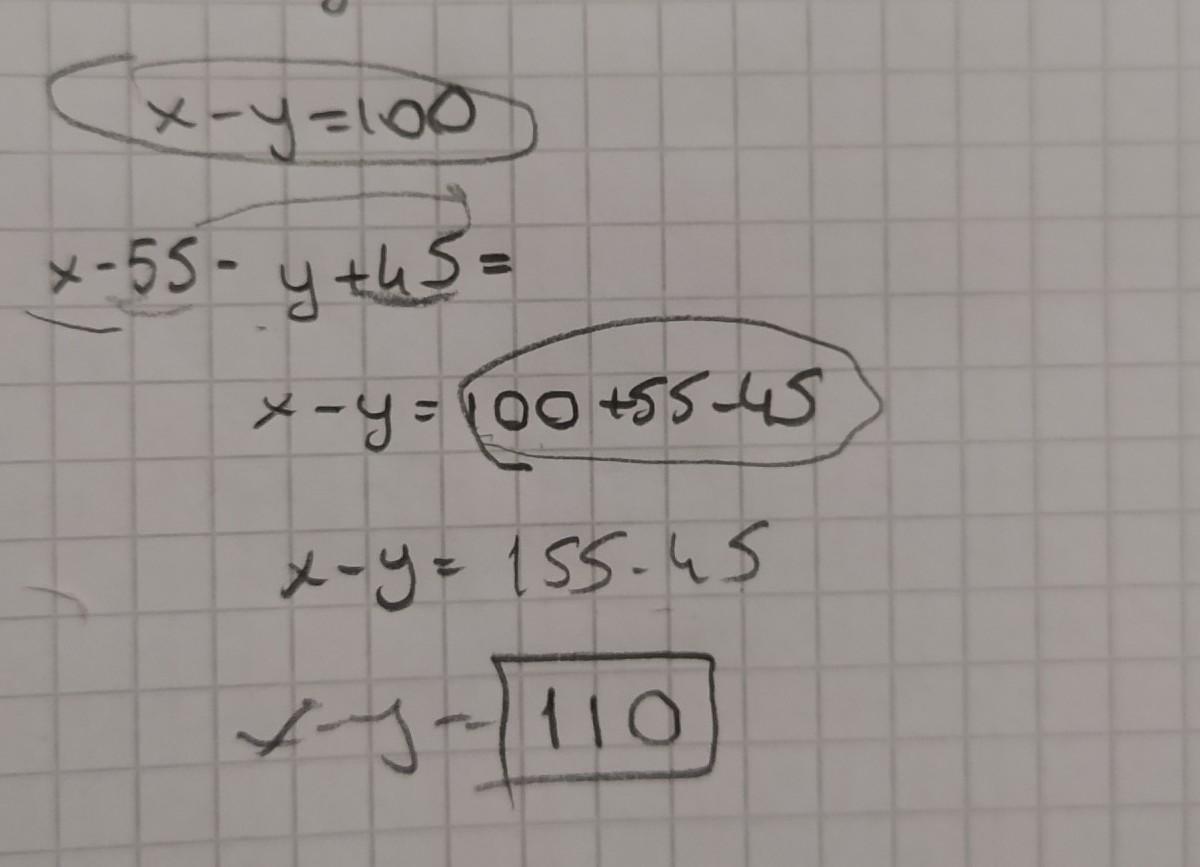 x-y=100
x-55- y+45=
x-y=100+55-45
x-y= 155-45
x-y=110